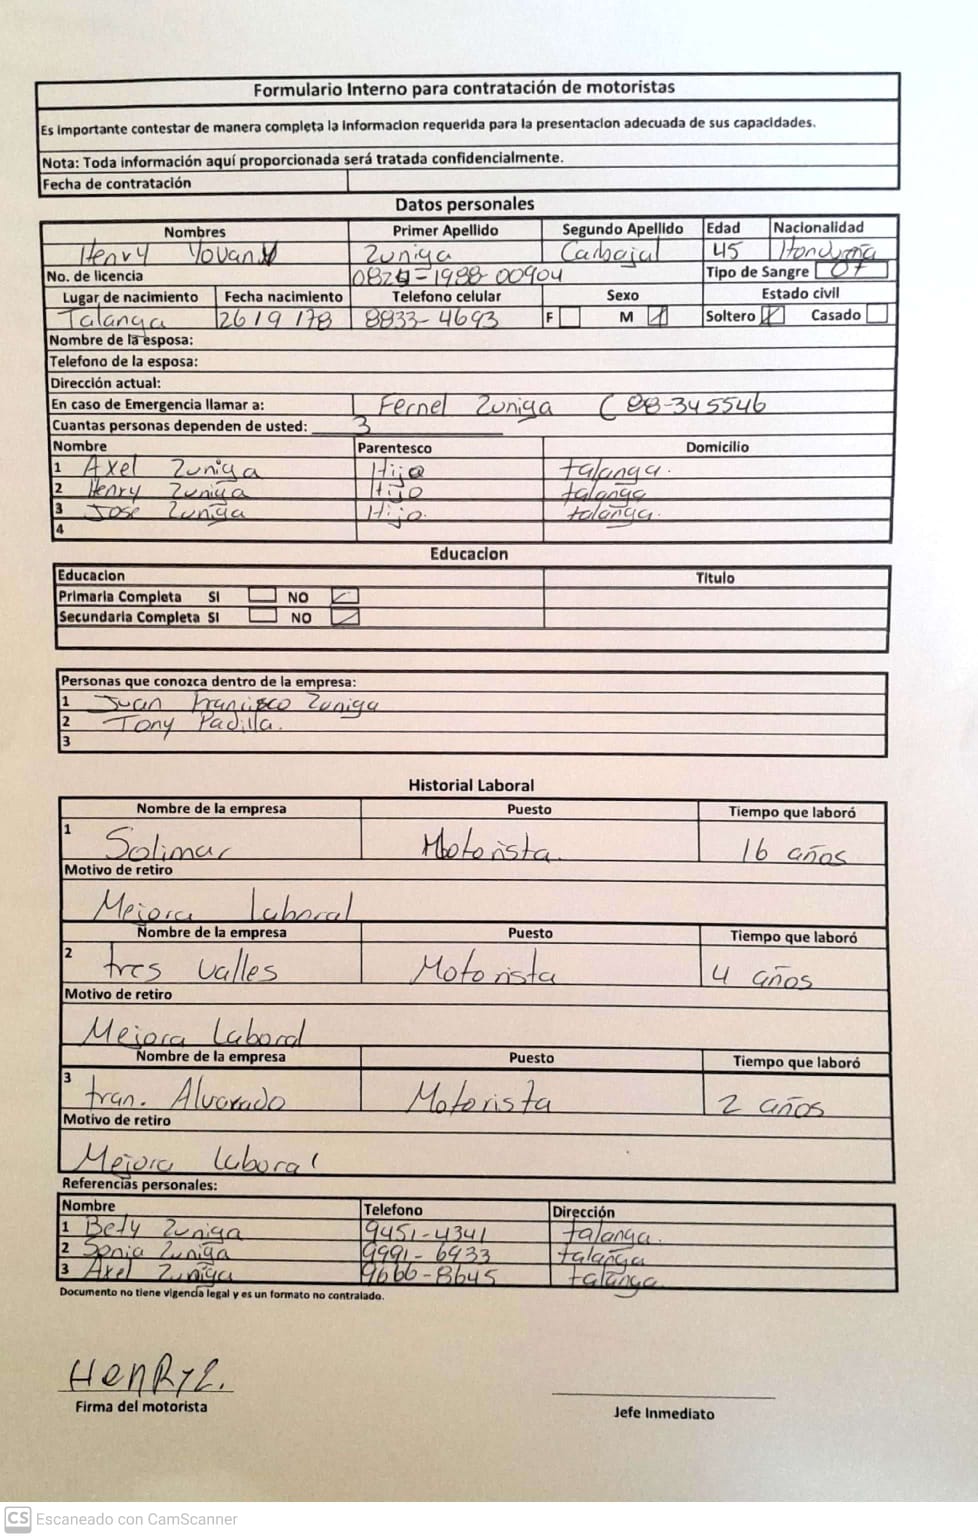 Formulario Interno para contratación de motoristas
Es Importante contestar de manera completa la Informacion requerida para la presentacion adecuada de sus capacidades.
Nota: Toda información aquí proporcionada será tratada confidencialmente.
Fecha de contratación
Datos personales
Nombres Primer Apellido Segundo Apellido Edad Nacionalidad
Henry Yovany Zuniga Carbajal 45 Hondureña
No. de licencia Tipo de Sangre
Lugar de nacimiento Fecha nacimiento Telefono celular Sexo Estado civil
Talanga 26/9/78 8833-4693 F M Soltero Casado
Nombre de la esposa:
Telefono de la esposa:
Dirección actual:
En caso de Emergencia llamar a: Fernel Zuniga
Cuantas personas dependen de usted: 3
Nombre Parentesco Domicilio
1 Axel Zuniga Hijo talanga.
2 Henry Zuniga Hijo talanga
3 Jose Zuniga Hijo. talanga.
4
Educacion
Educacion Titulo
Primaria Completa SI NO
Secundaria Completa SI NO
Personas que conozca dentro de la empresa:
1 Juan Francisco Zuniga
2 Tony Padilla.
3
Historial Laboral
Nombre de la empresa Puesto Tiempo que laboró
1 Solimar Motorista. 16 años
Motivo de retiro
Mejora Laboral
Nombre de la empresa Puesto Tiempo que laboró
2 tres valles Motorista 4 años
Motivo de retiro
Mejora Laboral
Nombre de la empresa Puesto Tiempo que laboró
3 tran. Alvarado Motorista 2 años
Motivo de retiro
Mejora laboral
Referencias personales:
Nombre Telefono Dirección
1 Bety Zuniga 9451-4341 talanga.
2 Sonia Zuniga 9991-6933 talanga
3 Axel Zuniga 9666-8645 talanga
Documento no tiene vigencia legal y es un formato no contralado.
HenRyZ.
Firma del motorista Jefe Inmediato
CS Escaneado con CamScanner